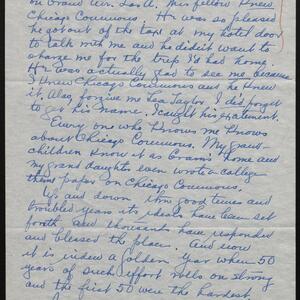 on Grand Ave. Lord, this fellow knew
Chicago Commons. He was so pleased
he got out of the taxi at my hotel door
to talk with me and he didn't want to
charge me for the trip I'd had home.
He was actually glad to see me because
I knew Chicago Commons and he knew
it. Also, forgive me Lea Taylor, I did forget
to get his name. I caught his excitement.
Every one who knows me knows
about Chicago Commons. My grand-
children know it as Gram's home and
my grand daughter even wrote a college
theme paper on Chicago Commons.
Up and down thru good times and
troubled years its ideals have been set
forth and thousands have responded
and blessed the place. And now
it is indeed a golden year when 50
years of such effort rolls on strong
and the first 50 were the hardest